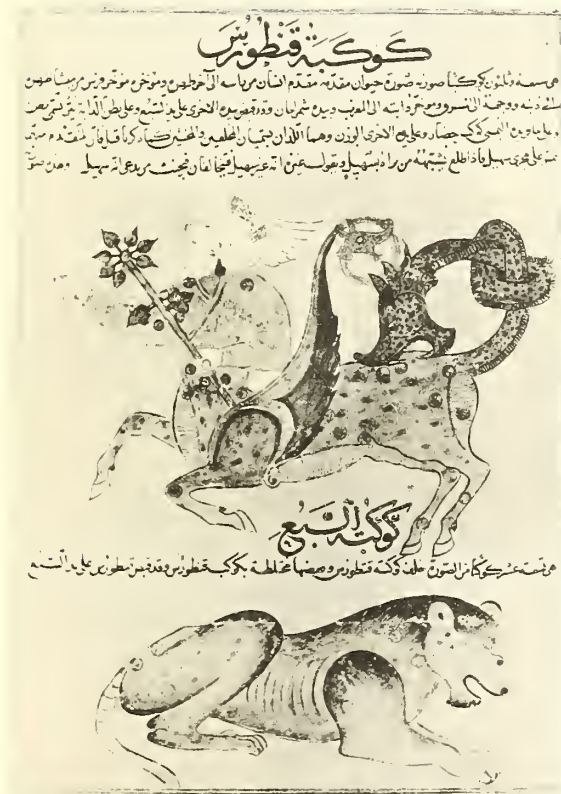 كوكبة قنطورس
هي سبعة وثلثون كوكبا صورته صورة حيوان مقدمه مقدم انسان من راسه الى آخر ظهره ومؤخره مؤخر فرس من منشا ظهره
الى ذنبه ووجهه الى المشرق ومؤخر دابته الى المغرب وبيده شمراخان وقد قبض بيده الاخرى على يد السبع وعلى بطن الدابة
وعلى يده اليمنى كوكب حضار وعلى يده الاخرى الوزن وهما اللذان يسميان المحلفين والمحنثين
على مجرى سهيل فاذا طلع يشتبهه من راه بسهيل ويقول غيره انه غير سهيل فيتحالفان فيحنث من يدعي انه سهيل وهذه صورته
كوكبة السبع
هي تسعة عشر كوكبا من الصورة خلف كوكبة قنطورس وبعضها مختلطة بكوكبة قنطورس وقد قبض قنطورس على يد السبع